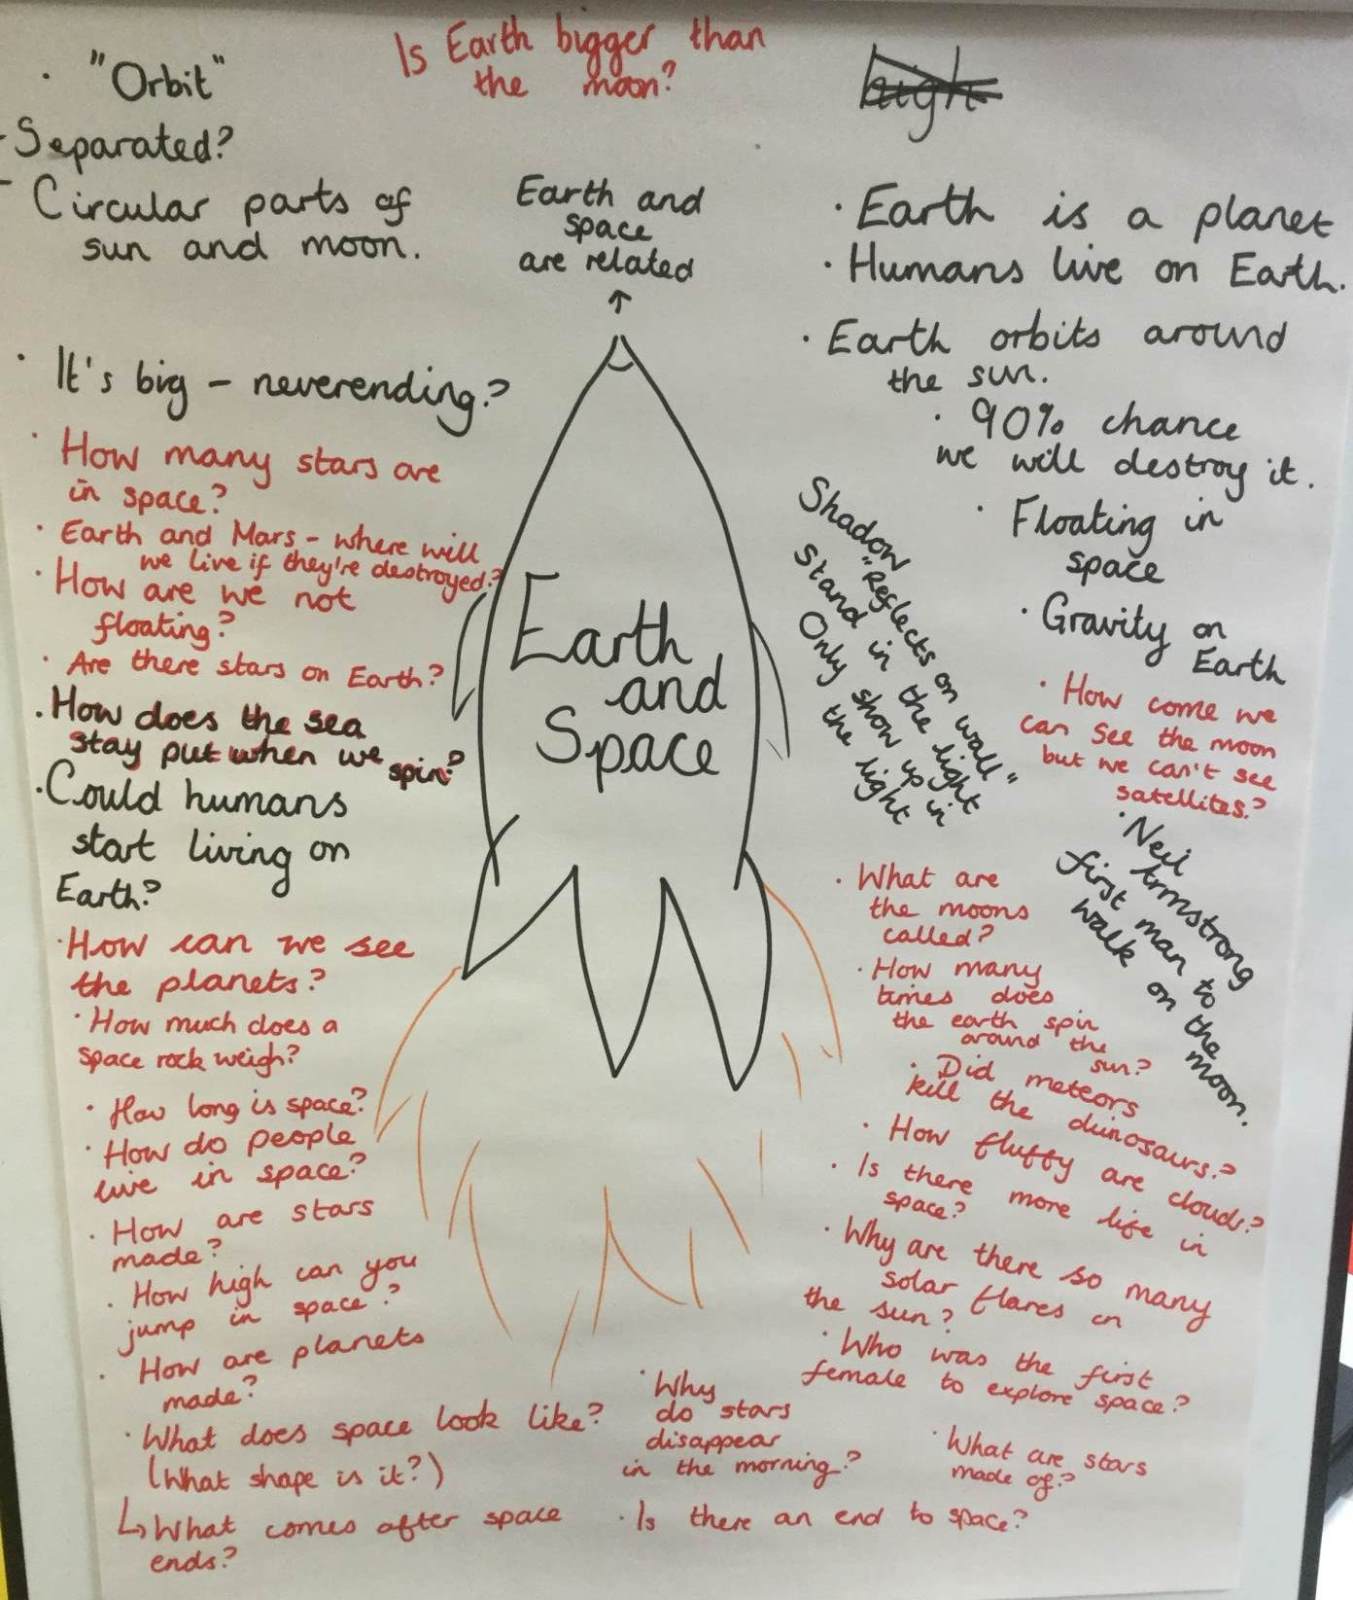 Is Earth bigger than
the moon?
· "Orbit"
- Separated?
- Circular parts of
sun and moon.
Earth and
space
are related
↑
· It's big – neverending?
· How many stars are
in space?
· Earth and Mars – where will
we live if they're destroyed?
· How are we not
floating?
· Are there stars on Earth?
· How does the sea
stay put when we spin?
· Could humans
start living on
Earth?
· How can we see
the planets?
· How much does a
space rock weigh?
· How long is space?
· How do people
live in space?
· How are stars
made?
· How high can you
jump in space?
· How are planets
made?
· What does space look like?
(What shape is it?)
↳ What comes after space
ends?
Earth
and
Space
high
· Earth is a planet
· Humans live on Earth.
· Earth orbits around
the sun.
· 90% chance
we will destroy it.
· Floating in
space
· Gravity on
Earth
Shadow
"Reflects on wall"
Stand in the light
Only show up in
the light
· How come we
can see the moon
but we can't see
satellites?
· Neil
Armstrong
first man to
walk on the
moon.
· What are
the moons
called?
· How many
times does
the earth spin
around the
sun?
· Did meteors
kill the duinosaurs?
· How fluffy are clouds?
· Is there more life in
space?
· Why are there so many
solar flares on
the sun?
· Who was the first
female to explore space?
· Why
do stars
disappear
in the morning?
· What are stars
made of?
· Is there an end to space?